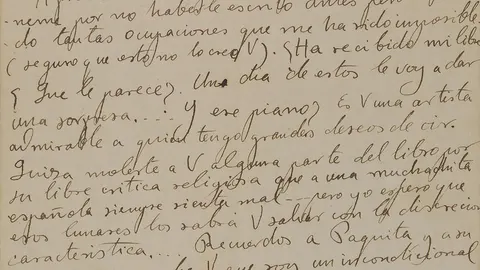 neme por no haberle escrito antes pero
do tantas ocupaciones que me ha sido imposible
(seguro que esto no lo cree V). ¿Ha recibido mi libro
¿Que le parece?. Un dia de estos le voy a dar
una sorpresa....! Y ese piano? Es V una artista
admirable a quien tengo grandes deseos de oir.
Quiza moleste a V alguna parte del libro por
su libre critica religiosa que a una muchachita
española siempre sienta mal... pero yo espero que
esos lunares los sabrá V salvar con la discrecion
caracteristica.... Recuerdos a Paquita y a su
V que soy un incondicional